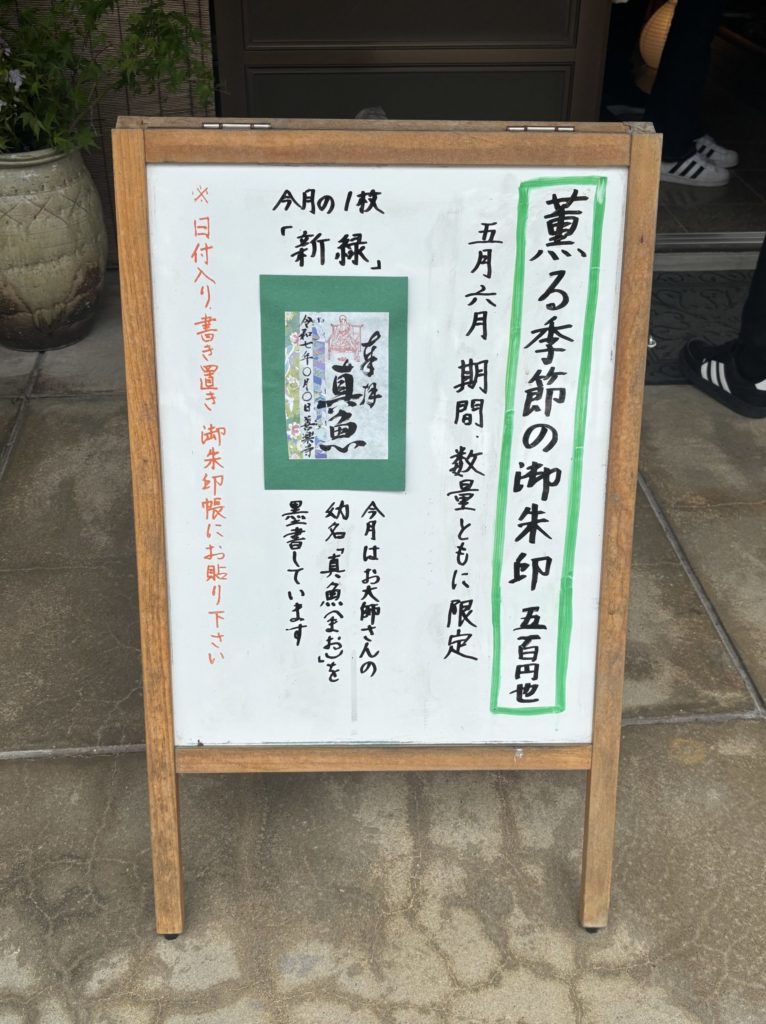 薫る季節の御朱印 五百円也
五月六月 期間・数量ともに限定
今月の1枚
「新緑」
奉拝
真魚
令和七年〇月〇日 善楽寺
今月はお大師さんの
幼名「真魚(まお)」を
墨書しています
※日付入り書き置き 御朱印帳にお貼り下さい